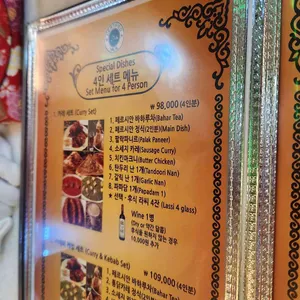 Special Dishes
4인 세트 메뉴
Set Menu for 4 Person
₩ 98,000 (4인분)
(Curry Set)
1. 페르시안 바하루차(Bahar Tea)
2. 페르시안 정식(2인분)(Main Dish)
3. 팔락파니르(Palak Paneer)
4. 소세지 카레(Sausage Curry)
5. 치킨마크니(Butter Chicken)
6. 탄두리 난 1개(Tandoori Nan)
7. 갈릭 난 1개(Garlic Nan)
8. 파파담 1개(Papadam 1)
★ 선택 - 후식 라씨 4잔 (Lassi 4 glass)
Wine 1병
(Dry or 약간 달콤)
후식을 원하지 않는 경우
10,000원 추가
(Curry & Kebab Set)
₩ 109,000 (4인분)
1. 페르시안 바하루차(Bahar
2.
3.